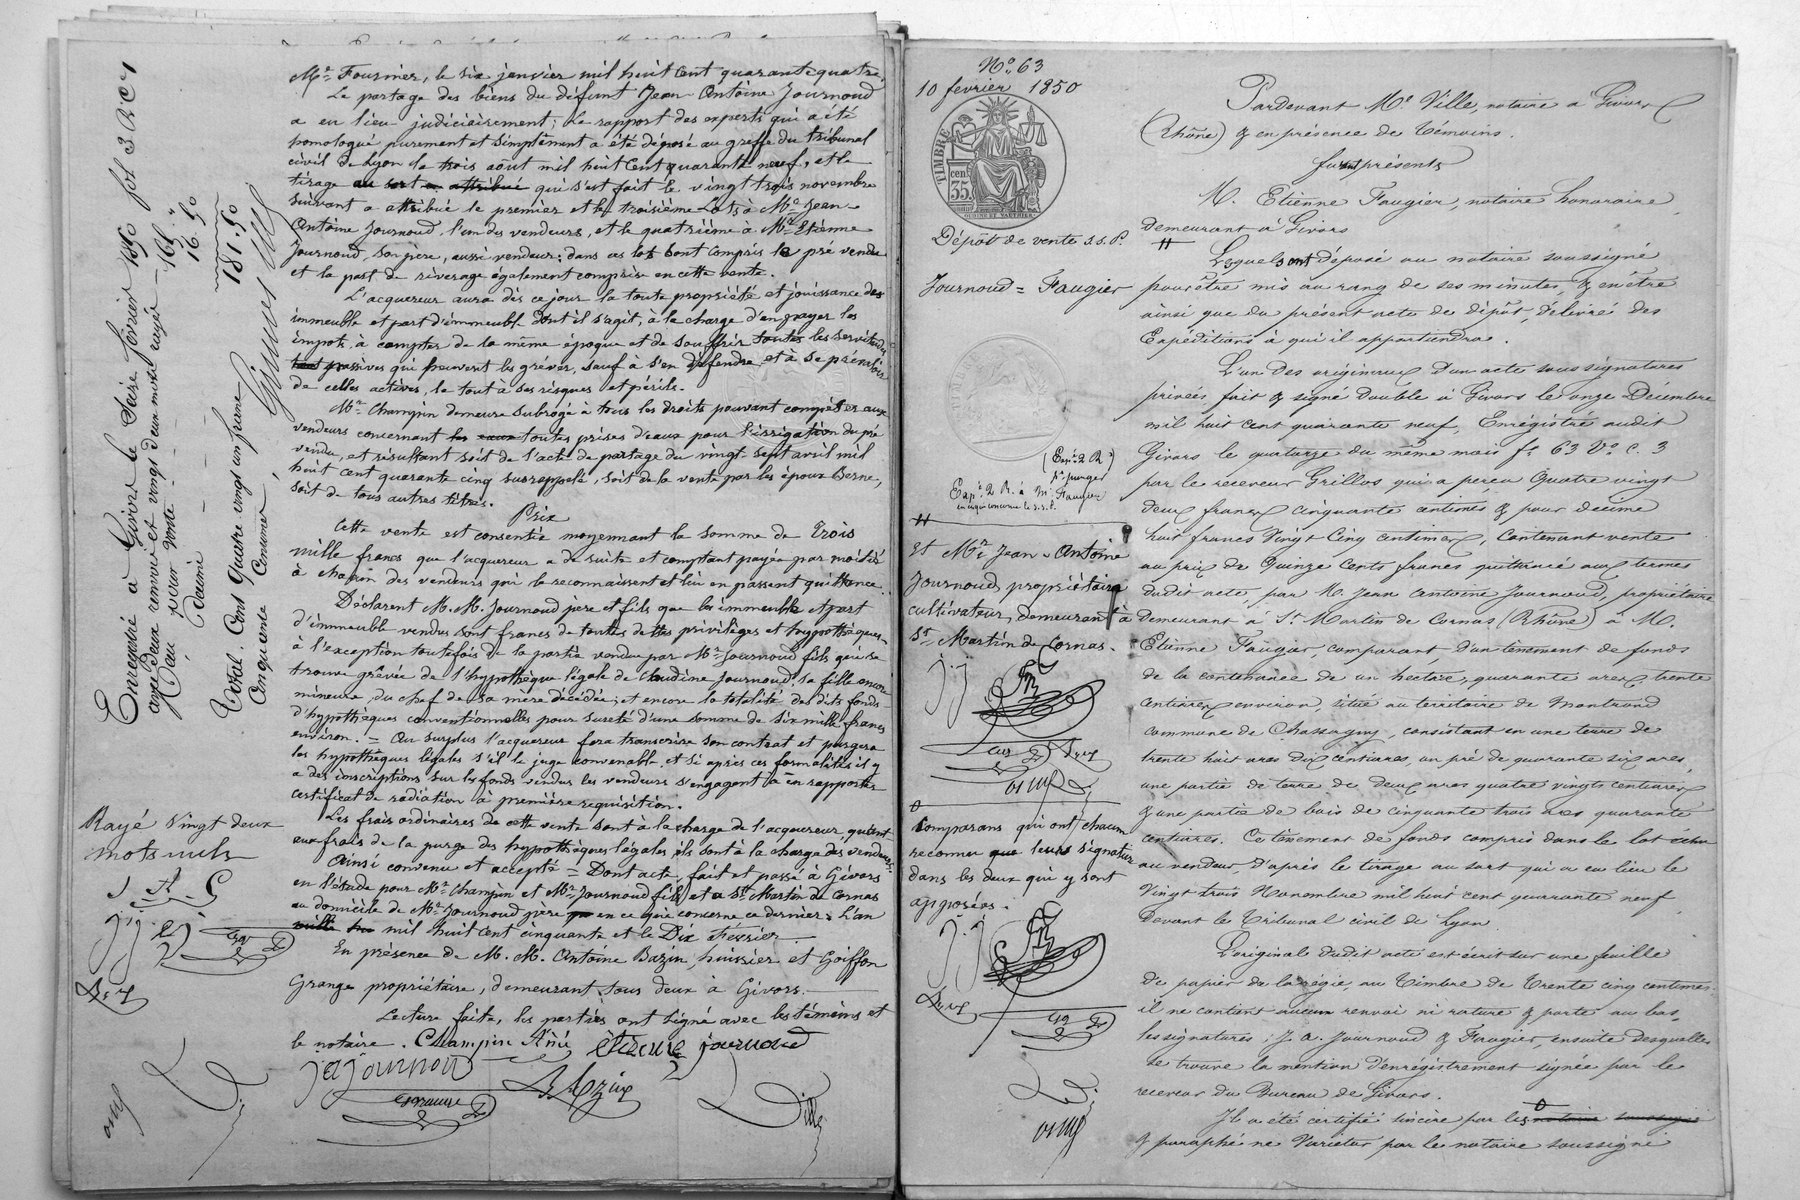 Mr Fournier, le six janvier mil huit cent quarante quatre.
Le partage des biens du défunt Jean Antoine Journoud
a eu lieu judiciairement; le rapport des experts qui a été
homologué purement et simplement a été déposé au greffe du tribunal
civil de Lyon le trois août mil huit cent quarante neuf, et le
tirage au sort a attribué qui s'est fait le vingt trois novembre
suivant a attribué le premier et le troisième Lots à Mr Jean
Antoine Journoud, l'un des vendeurs, et le quatrième à Mr Etienne
Journoud, son père, aussi vendeur; dans ces lots sont compris le pré vendu
et la part de riverage également comprise en cette vente.
L'acquereur aura dès ce jour la toute propriété et jouissance des
immeuble et part d'immeuble dont il s'agit, à la charge d'en payer les
impots à compter de la même époque et de souffrir toutes les servitudes
passives qui peuvent les grèver, sauf à s'en défendre et à se prévaloir
de celles actives, le tout à ses risques et périls.
Mr Champin demeure subrogé à tous les droits pouvant compèter aux
vendeurs concernant les eaux toutes prises d'eaux pour l'irrigation du pré
vendu, et résultant soit de l'acte de partage du vingt-sept avril mil
huit cent quarante cinq susrappelé, soit de la vente par les époux Berne,
soit de tous autres titres.
Prix
Cette vente est consentie moyennant la somme de Trois
mille francs que l'acquereur a de suite et comptant payée par moitié
à chacun des vendeurs qui le reconnaissent et lui en passent quittance.
Déclarent M.M. Journoud père et fils que les immeuble et part
d'immeuble vendus sont francs de toutes dettes privilèges et hypothèques
à l'exception toutefois de la partie vendue par Mr Journoud fils qui se
trouve grévée de l'hypothèque légale de Claudine Journoud, sa fille encore
mineure, du chef de sa mère décédée; et encore la totalité des dits fonds
d'hypothèques conventionnelles pour sureté d'une somme de six mille francs
environ. = Au surplus l'acquereur fera transcrire son contrat et purgera
les hypothèques légales s'il le juge convenable, et si après ces formalités il y
a des inscriptions sur les fonds vendus les vendeurs s'engagent à en rapporter
certificat de radiation à première requisition.
Les frais ordinaires de cette vente sont à la charge de l'acquereur, quant
aux frais de la purge des hypothèques légales ils sont à la charge des vendeurs.
Ainsi convenu et accepté = Dont acte, fait et passé à Givors
en l'étude pour Mr Champin et Mr Journoud fils, et à St Martin de Cornas
au domicile de Mr Journoud père en ce qui concerne ce dernier. L'an
mil huit cent cinquante et le Dix Février.
En présence de M.M. Antoine Bazin, huissier et Goiffon
Grange propriétaire, demeurant tous deux à Givors.
Lecture faite, les parties ont signé avec les témoins et
le notaire. Champin Aîné Etienne journoud
j a journoud
Bazin
Ville
Enregistré à Givors le Seize février 1850 fol 3 R C 7
avec deux renvois et vingt deux mots rayés
Reçu pour vente 165 "
Décime 16.50
181.50
Total. Cent Quatre vingt un francs
Cinquante Centimes
Rayé vingt deux
mots nuls
J. A. C
j j
No 63
10 février 1850
TIMBRE
35 cent
Dépôt de vente S.S.P.
Journoud = Faugier
Expn 2 R à Mr Faugier
en ce qui concerne le s.s.P.
(Expn 2 R
pr purger
Et Mr Jean-Antoine
Journoud, propriétaire
cultivateur, demeurant à
St Martin de Cornas.
j j
comparans qui ont chacun
reconnu que leurs signatures
dans les deux qui y sont
apposées.
j. j
Pardevant Me Ville, notaire à Givors
(Rhône) & en présence de témoins.
furent présents
M. Etienne Faugier, notaire honoraire,
demeurant à Givors
Lesquels ont déposé au notaire soussigné
pour être mis au rang de ses minutes, & en être
ainsi que du présent acte de dépôt, délivré des
Expéditions à qui il appartiendra.
L'un des originaux d'un acte sous signatures
privées, fait & signé double à Givors le onze Décembre
mil huit cent quarante neuf, Enrégistré audit
Givors le quatorze du même mois fo 63 Vo C. 3
par le receveur Grillos qui a perçu Quatre vingt
deux francs cinquante centimes & pour décime
huit francs Vingt Cinq centimes, Contenant vente
au prix de Quinze Cents francs quittancé aux termes
dudit acte par M. Jean Antoine Journoud, propriétaire
demeurant à St Martin de Cornas (Rhône) à M.
Etienne Faugier, comparant, d'un tènement de fonds
de la contenance de un hectare, quarante ares, trente
centiares environ, situé au territoire de Montrond
commune de Chassagny, consistant en une terre de
trente huit ares dix centiares, un pré de quarante six ares,
une partie de terre de deux ares quatre vingts centiares
& une partie de bois de cinquante trois ares quarante
centiares. Ce tènement de fonds compris dans le lot échu
au vendeur, d'après le tirage au sort qui a eu lieu le
Vingt trois Novembre mil huit cent quarante neuf
Devant le Tribunal civil de Lyon.
L'original dudit acte est écrit sur une feuille
de papier de la régie, au timbre de trente cinq centimes.
il ne contient aucun renvoi ni rature & porte au bas,
les signatures; J. A. Journoud & Faugier, ensuite desquelles
se trouve la mention d'enrégistrement signée par le
receveur du Bureau de Givors.
Il a été certifié sincère par les notaire soussigné
& paraphé ne Varietur par le notaire soussigné